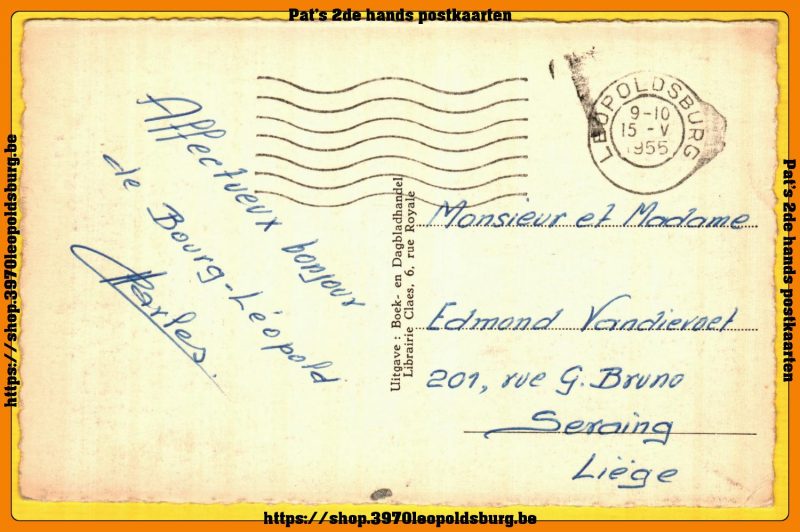 Pat's 2de hands postkaarten
LEOPOLDSBURG
9-10
15 -V
1955
Affectueux bonjour
de Bourg-Léopold
Charles.
Uitgave: Boek- en Dagbladhandel
Librairie Claes, 6, rue Royale
Monsieur et Madame
Edmond Vandievoet
201, rue G. Bruno
Seraing
Liège
https://shop.3970leopoldsburg.be
Pat's 2de hands postkaarten
https://shop.3970leopoldsburg.be